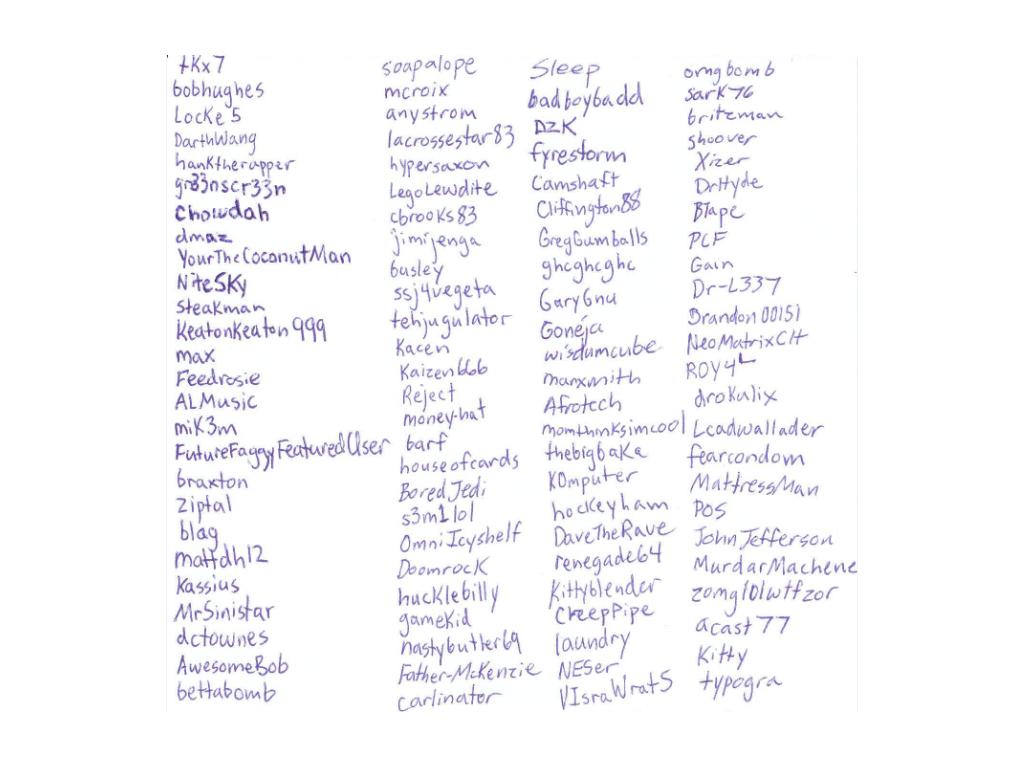 tKx7
bobhughes
Locke5
DarthWang
hanktherapper
gr33nscr33n
Chowdah
dmaz
YourTheCoconutMan
NiteSKy
Steakman
KeatonKeaton999
max
Feedrosie
ALMusic
miK3m
FutureFaggyFeaturedUser
braxton
Ziptal
blag
mattdh12
Kassius
MrSinistar
dctownes
AwesomeBob
bettabomb
soapalope
mcroix
anystrom
lacrossestar83
hypersaxon
LegoLewdite
cbrooks83
jimijenga
busley
ssj4vegeta
tehjugulator
Kacen
Kaizen666
Reject
money-hat
barf
houseofcards
BoredJedi
s3m1lol
OmniIcyshelf
Doomrock
hucklebilly
gamekid
nastybutler69
Father-McKenzie
carlinator
Sleep
badboybadd
DZK
fyrestorm
Camshaft
Cliffington88
GregGumballs
ghcghcghc
GaryGnu
Goneja
wisdumcube
manxmith
Afrotech
momthinksimcool
thebigbaKa
K0mputer
hockeyham
DaveTheRave
renegade64
Kittyblender
CreepPipe
laundry
NESer
VIsraWratS
omgbomb
sark76
britzman
shoover
Xizer
DrHyde
BTape
PCF
Gain
Dr-L337
Brandon00151
NeoMatrixCH
ROY4L
drokulix
Lcadwallader
fearcondom
MattressMan
POS
JohnJefferson
MurdarMachene
zomg101wtfzor
acast77
Kitty
typogra